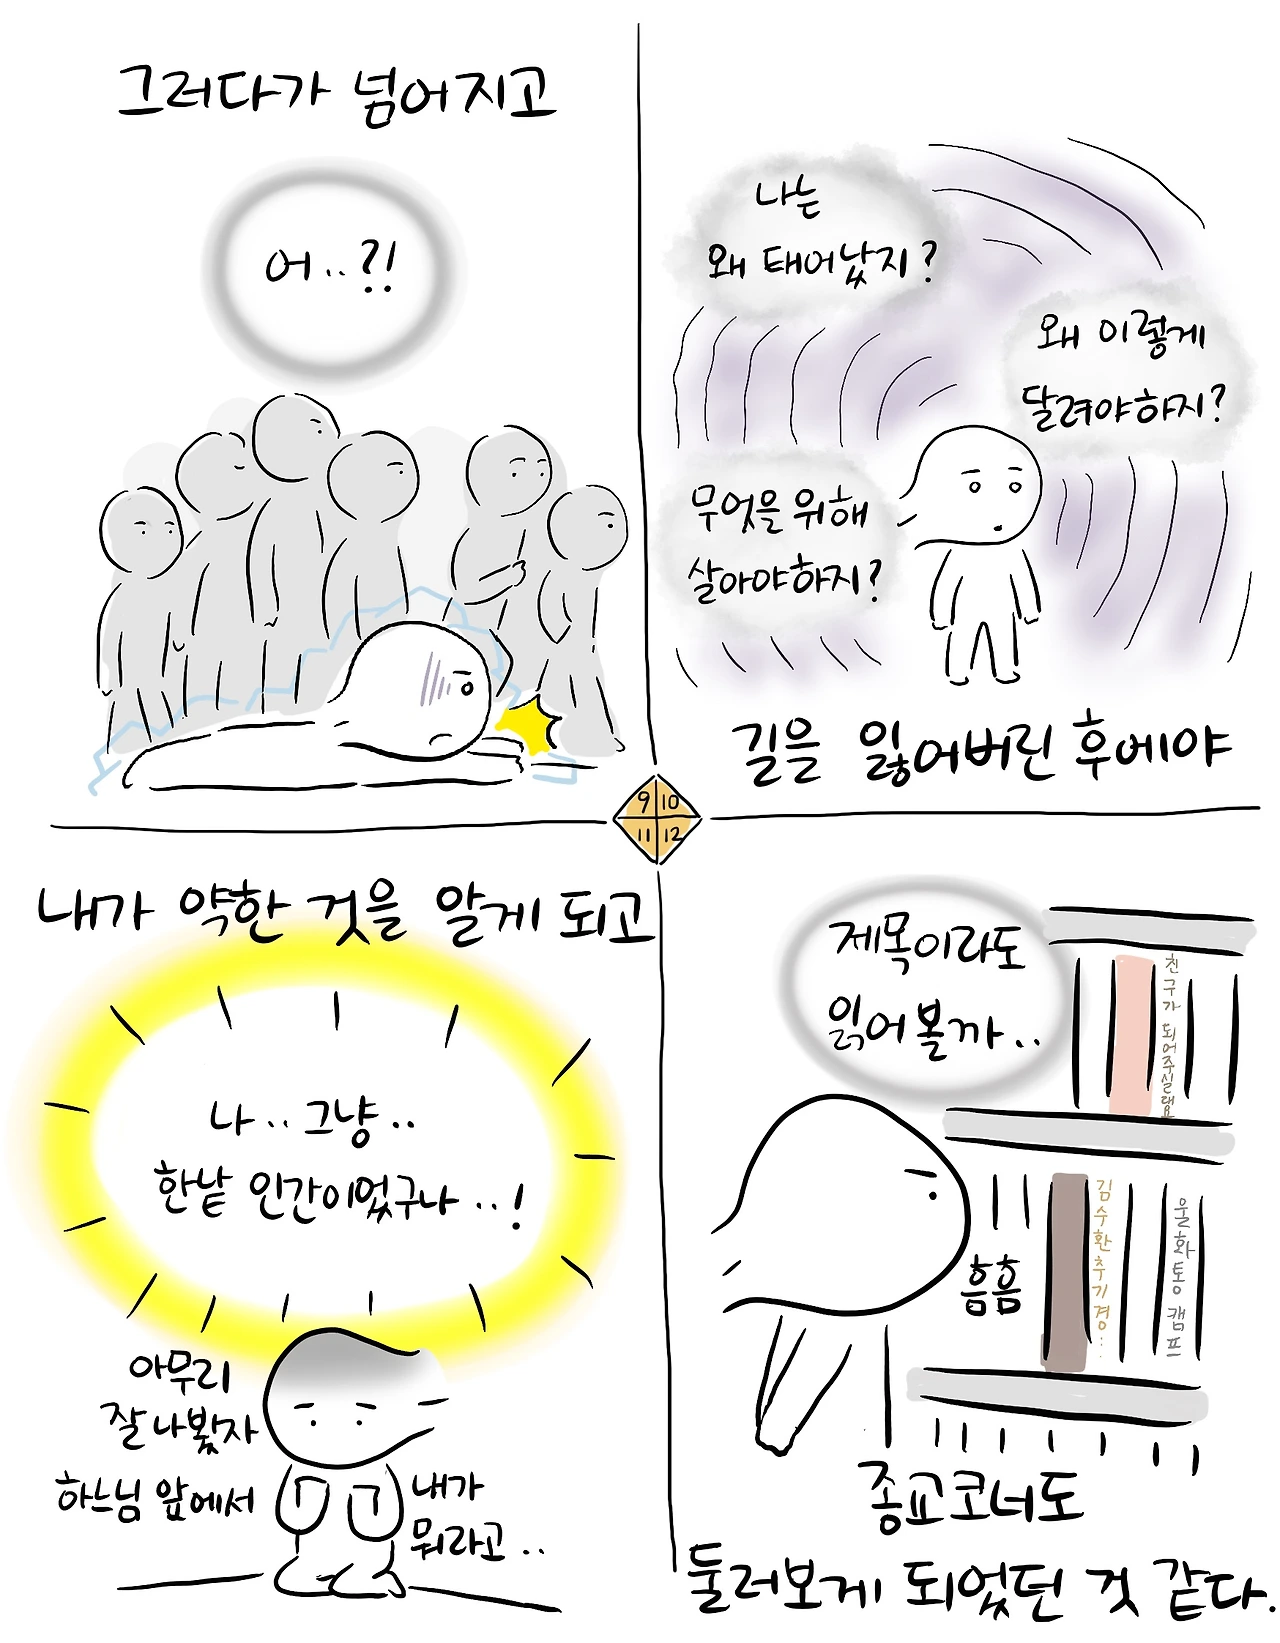 그러다가 넘어지고
어..?!
나는
왜 태어났지?
왜 이렇게
달려야하지?
무엇을 위해
살아야하지?
길을 잃어버린 후에야
9 10
11 12
내가 약한 것을 알게 되고
나.. 그냥..
한낱 인간이었구나..!
아무리
잘나봤자
하느님 앞에서
내가
뭐라고..
제목이라도
읽어볼까..
친구가 되어주실래요
김수환추기경..
울화통 캠프
흠흠
종교코너도
둘러보게 되었던 것 같다.